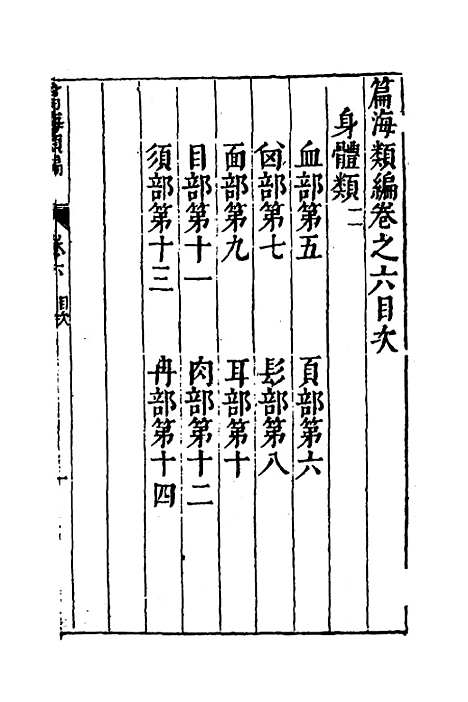 篇海類編卷之六目次
身體類二
血部第五
頁部第六
囟部第七
髟部第八
面部第九
耳部第十
目部第十一
肉部第十二
須部第十三
冉部第十四
篇海類編
卷六
目次
一